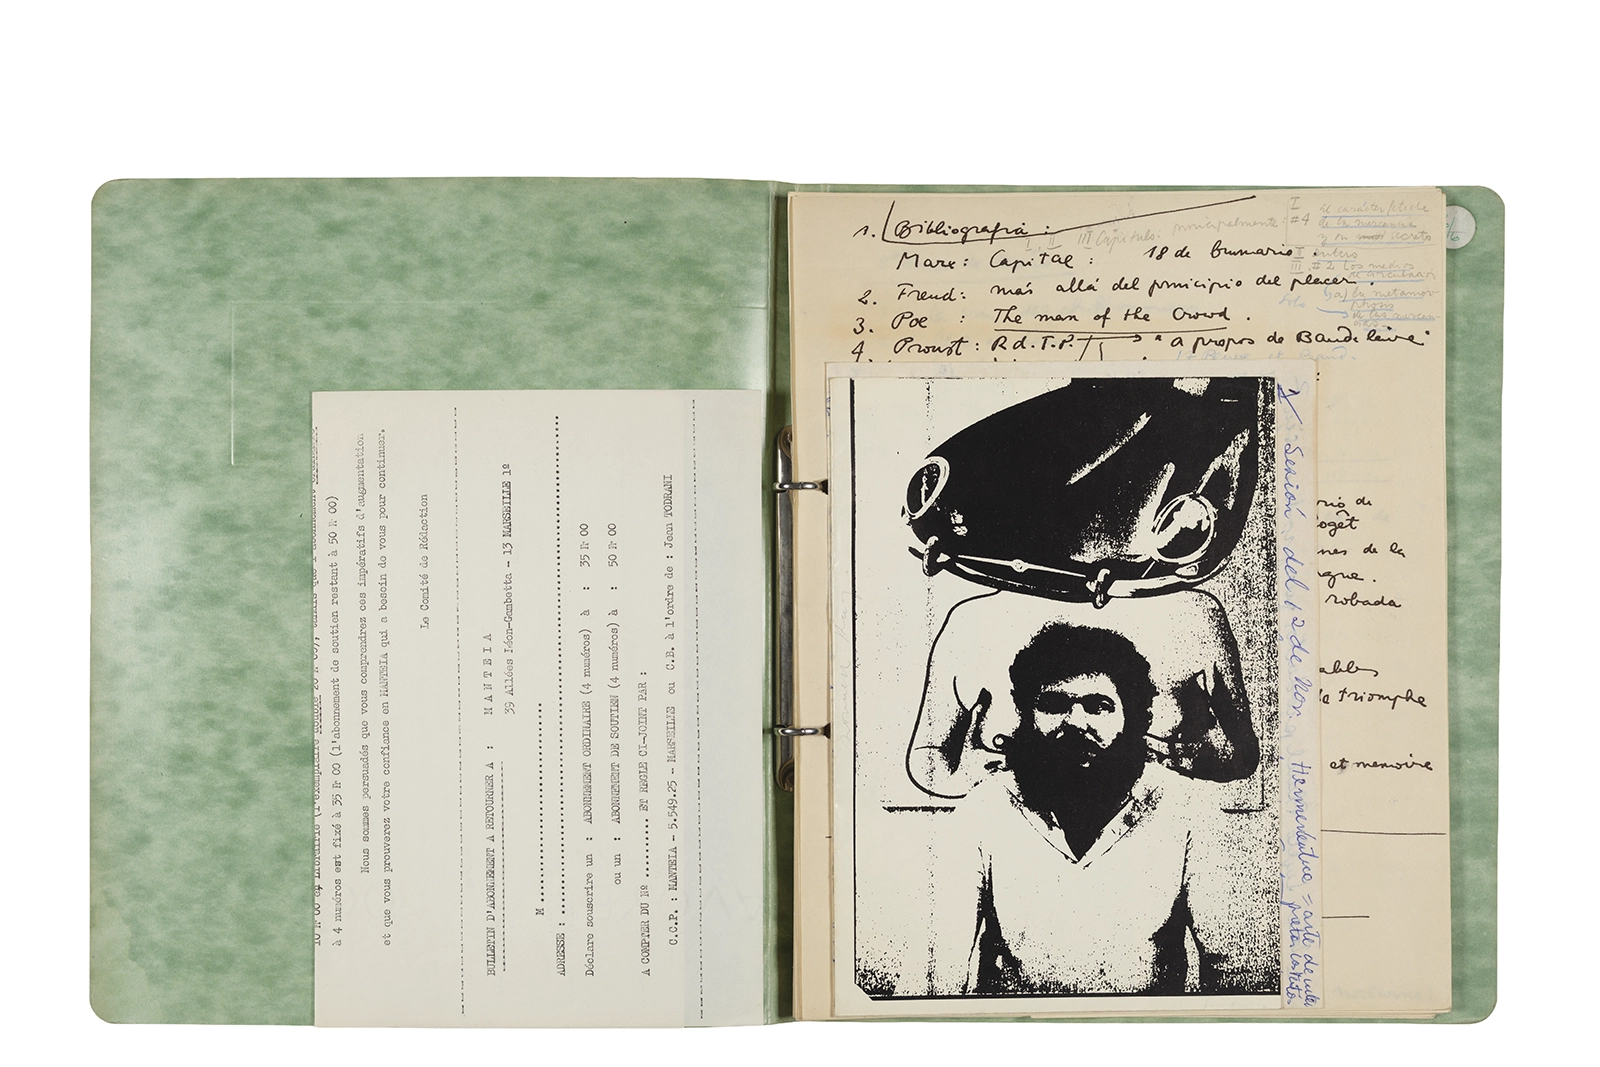 à 4 numéros est fixé à 35 Fr 00 (l'abonnement de soutien restant à 50 Fr 00)
Nous sommes persuadés que vous comprendrez ces impératifs d'augmentation
et que vous prouverez votre confiance en MANTEIA qui a besoin de vous pour continuer.
Le Comité de Rédaction
BULLETIN D'ABONNEMENT A RETOURNER A : MANTEIA
39 Allées Léon-Gambetta - 13 MARSEILLE 1º
M
ADRESSE :
Déclare souscrire un : ABONNEMENT ORDINAIRE (4 numéros) à : 35 Fr 00
ou un : ABONNEMENT DE SOUTIEN (4 numéros) à : 50 Fr 00
A COMPTER DU Nº ........ ET REGLE CI-JOINT PAR :
C.C.P. : MANTEIA - 5.549.25 - MARSEILLE ou C.B. à l'ordre de : Jean TODRANI
1. Bibliografia :
I II III Capitulo: principalmente:
I #4 el carácter fetiche
de la mercancía
y su secreto
Marx: Capital : 18 de brumario.
III #2 Los medios
de circulación
2. Freud: más allá del principio del placer.
a) la metamor
3. Poe : The man of the Crowd.
4. Proust: R.d.T.P. "a propos de Baudelaire"
de la
robada
de Triomphe
et memoire
Sesión del 12 de Nov. Hermenéutica = arte de